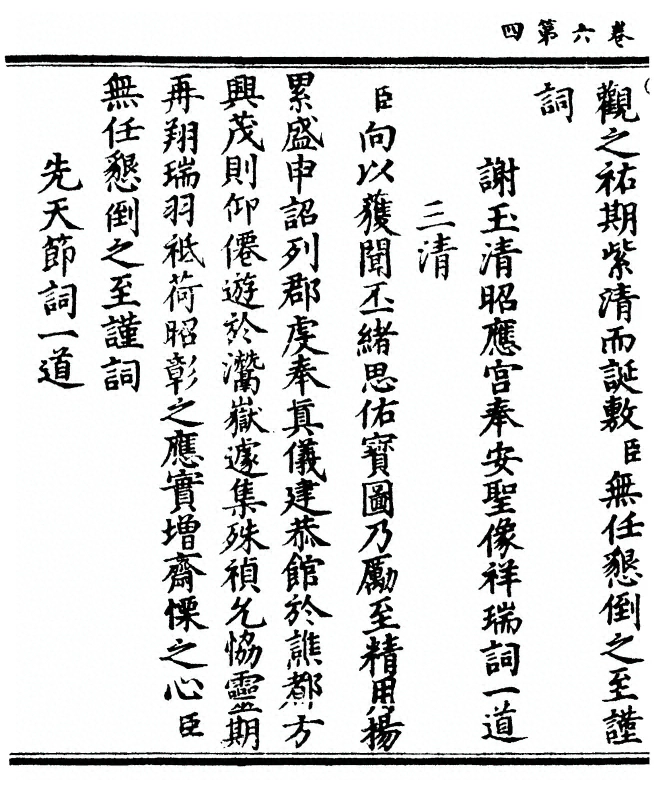 卷六第四
觀之祐期紫清而誕敷臣無任懇倒之至謹
詞
謝玉清昭應宮奉安聖像祥瑞詞一道
三清
臣向以獲聞丕緒思佑寶圖乃勵至精用揚
累盛申詔列郡虔奉眞儀建恭館於譙都方
興茂則仰僊遊於灊嶽遽集殊禎允恊靈期
再翔瑞羽祗荷昭彰之應實增齋慄之心臣
無任懇倒之至謹詞
先天節詞一道